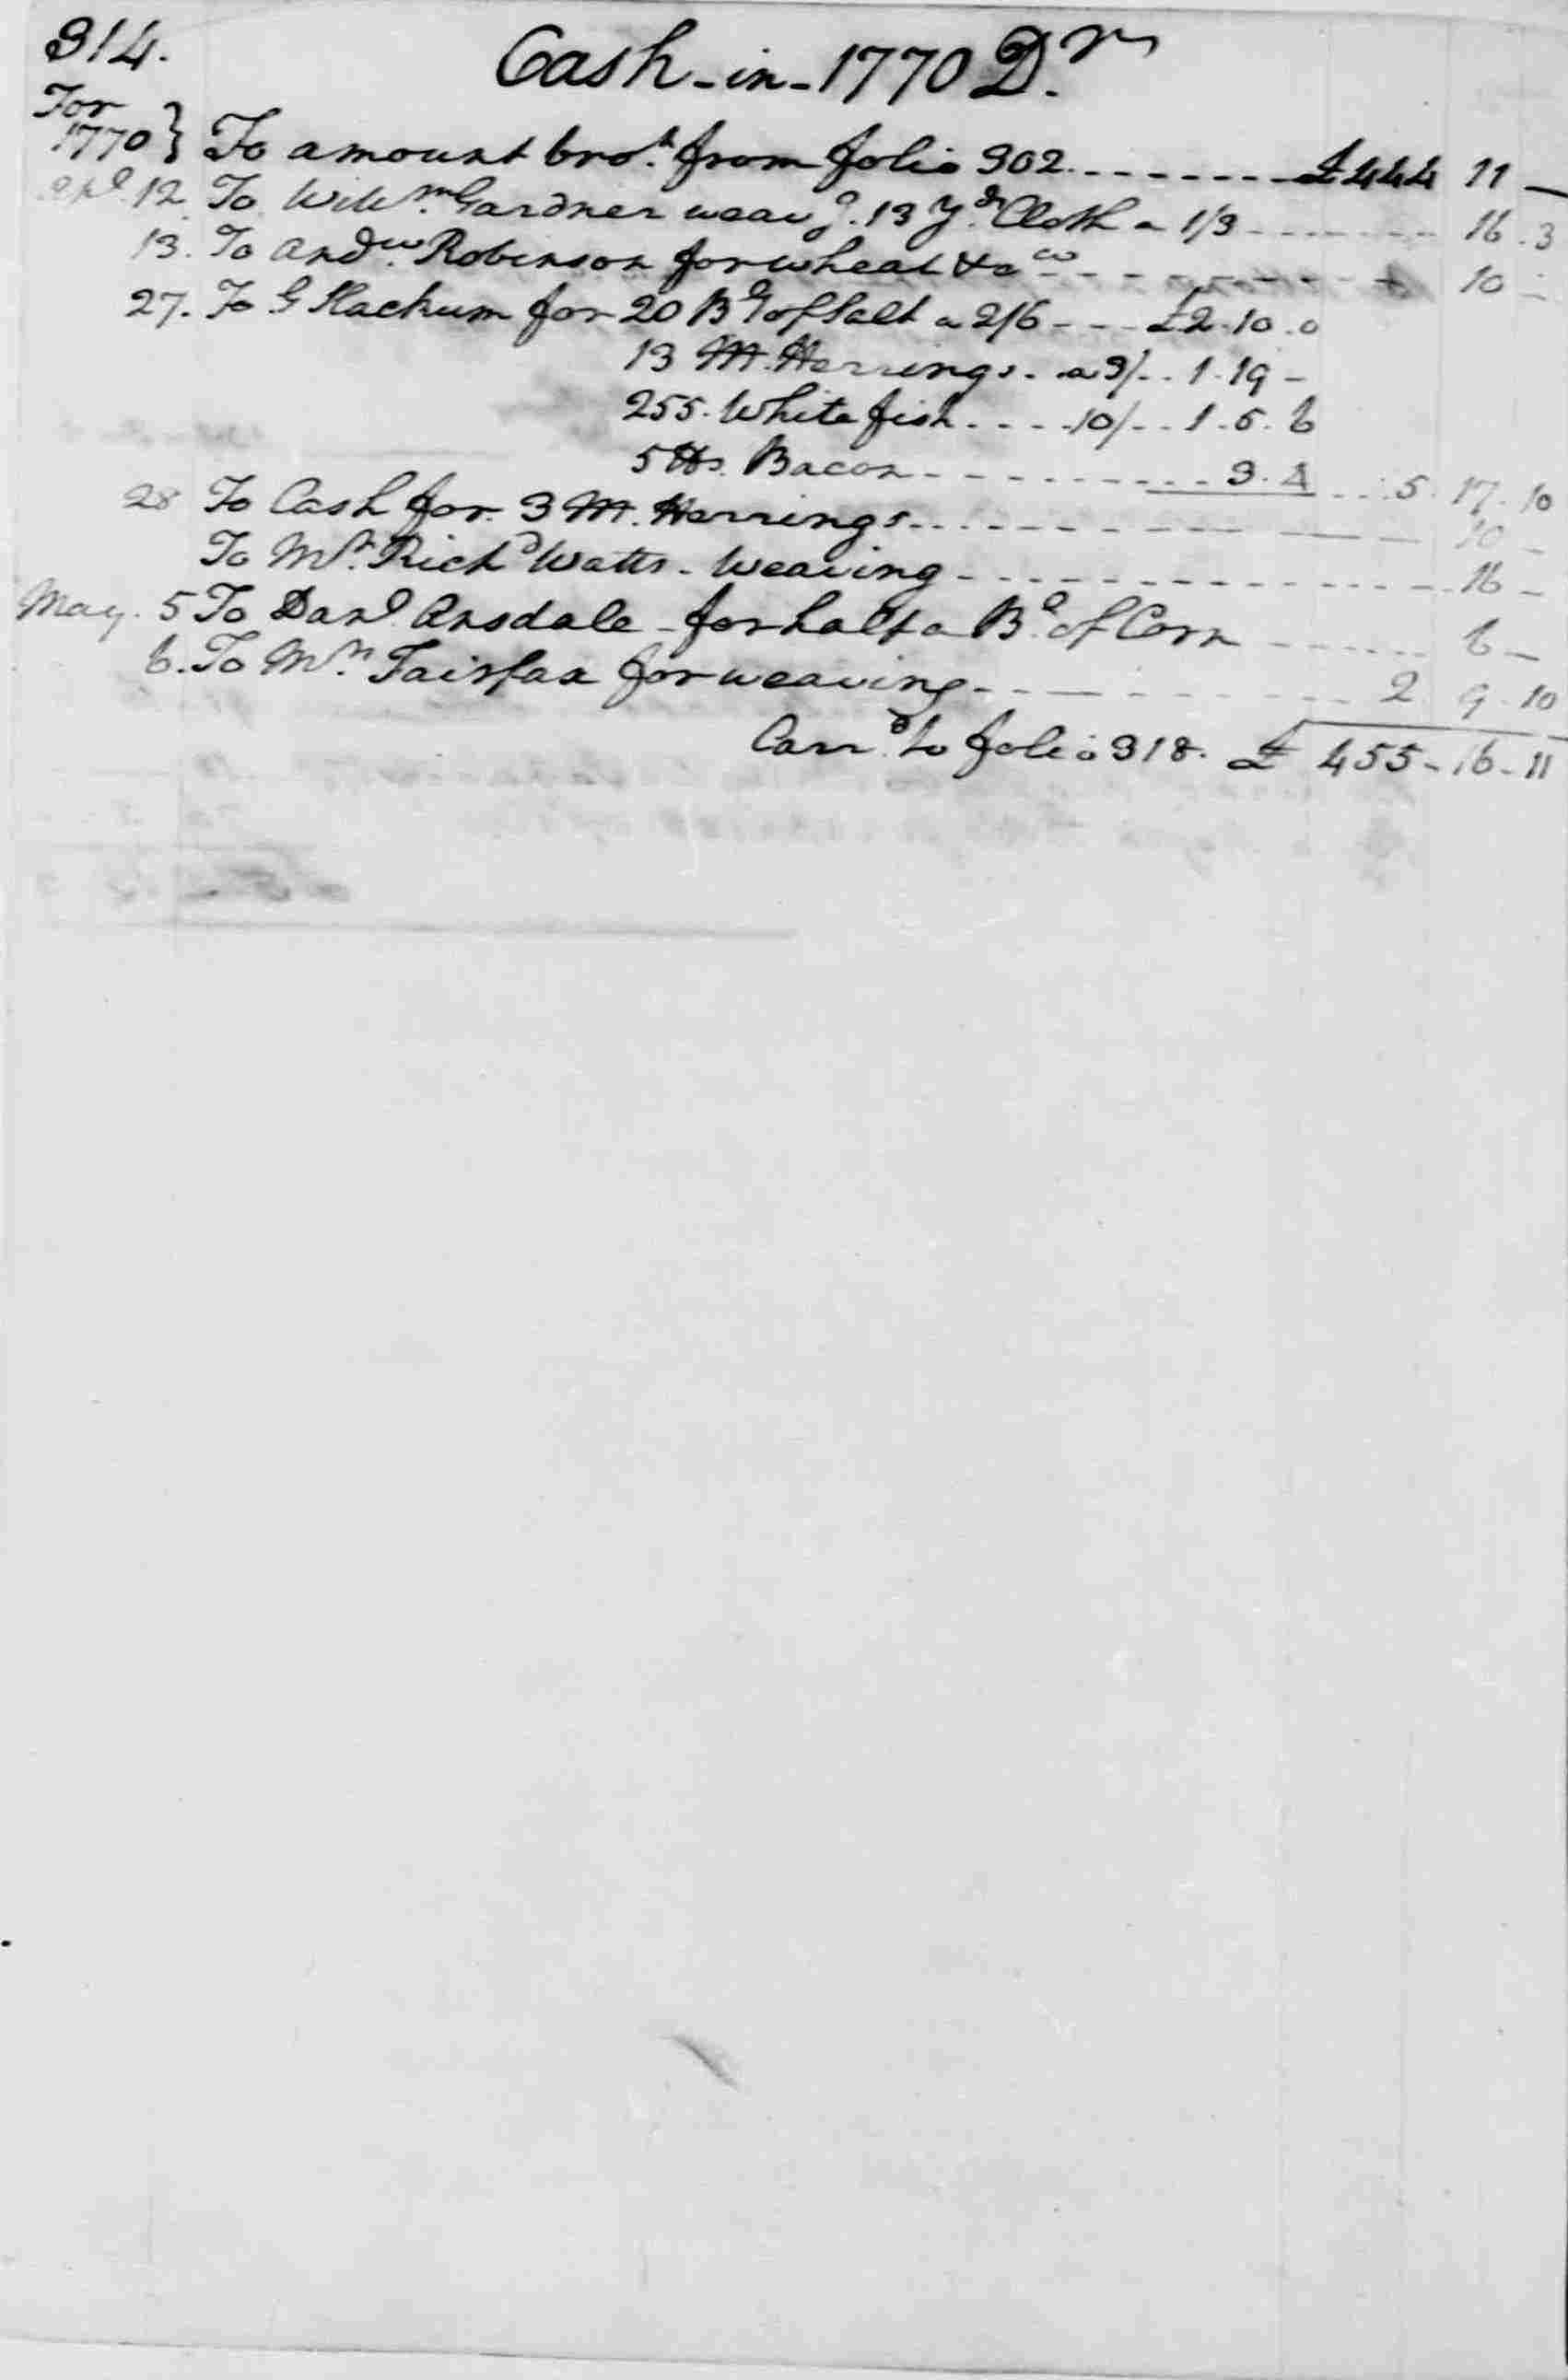 314.
Cash-in-1770 Dr.
For
1770 } To amount brot. from folio 302 ------- £444 11 —
Apl. 12. To Willm. Gardner weavg. 13 Yds. Cloth a 1/3 ------- 16.3
13. To Andw. Robinson for wheat &ca ------- 10 —
27. To G Slackum for 20 Bls of Salt a 2/6 --- £2.10.0
13 M. Herrings. a 3/.. 1.19 —
255. White fish. ... 10/.. 1.5.6
5 lbs. Bacon ------- 3.4 ... 5.17.10
28 To Cash for 3 M. Herrings ------- 10 —
To Mr. Richd Watts. Weaving ------- 16 —
May. 5 To Danl. Ansdale for half a Bl. of Corn ------- 6 —
6. To Mrs. Fairfax for weaving ------- 2 9.10
Carrd. to folio 318. £ 455-16-11